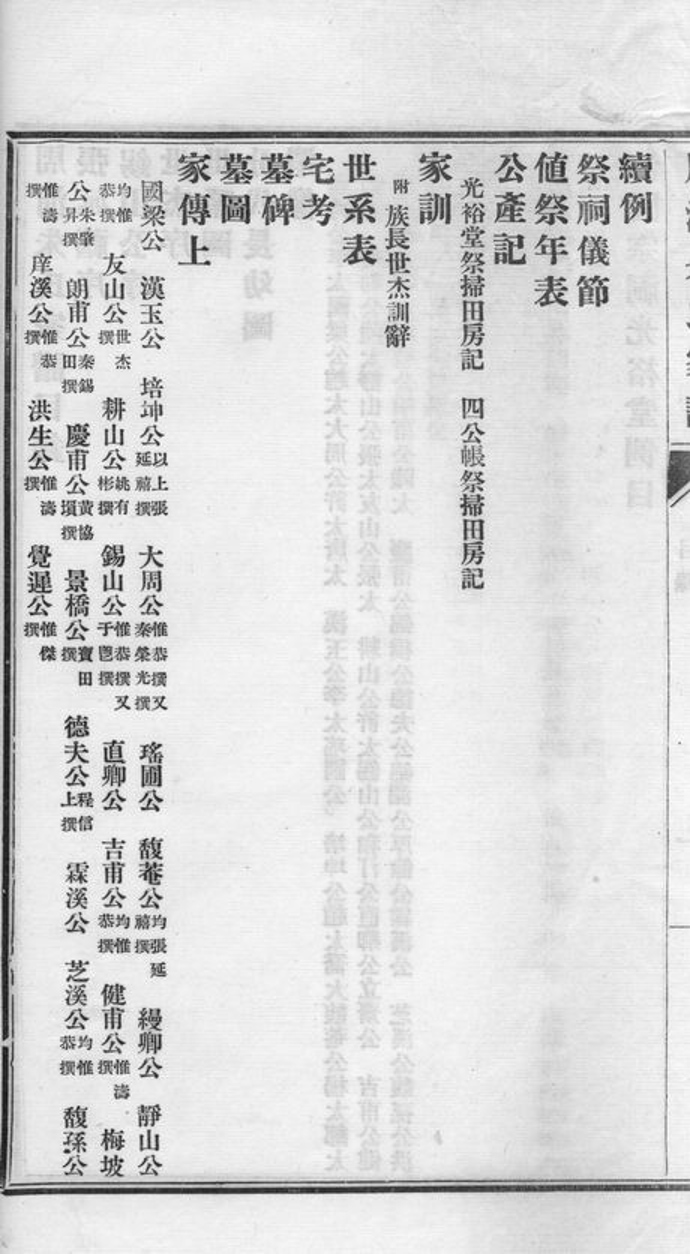 續例
祭祠儀節
値祭年表
公產記
光裕堂祭掃田房記 四公帳祭掃田房記
家訓
附 族長世杰訓辭
世系表
宅考
墓碑
墓圖
家傳上
國梁公 漢玉公 培坤公以上張延禧撰 大周公惟恭撰又秦榮光撰 瑤圃公 馥菴公均張延禧撰 縵卿公 靜山公
均惟恭撰 友山公世杰撰 耕山公姚有彬撰 錫山公惟恭撰又于鬯撰 直卿公 吉甫公均惟恭撰 健甫公惟濤撰 梅坡
公朱肇昇撰 朗甫公秦錫田撰 慶甫公黃協塤撰 景橋公寶田撰 德夫公程信上撰 霖溪公 芝溪公均惟恭撰 馥孫公
惟濤撰 庠溪公惟恭撰 洪生公惟濤撰 覺遲公惟傑撰